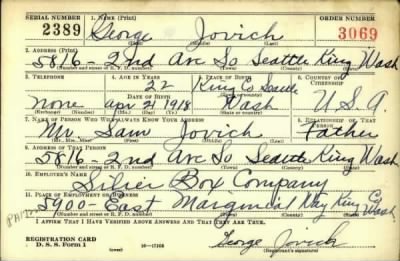 SERIAL NUMBER 1. NAME (Print) ORDER NUMBER
2389 George Jovich 3069
2. ADDRESS (Print)
5816 - 2nd Ave So Seattle King Wash
3. TELEPHONE 4. AGE IN YEARS 5. PLACE OF BIRTH 6. COUNTRY OF CITIZENSHIP
22 King Co Seattle
DATE OF BIRTH
None Apr 21 1918 Wash U.S.A.
7. NAME OF PERSON WHO WILL ALWAYS KNOW YOUR ADDRESS 8. RELATIONSHIP OF THAT PERSON
Mr. Sam Jovich Father
9. ADDRESS OF THAT PERSON
5816 - 2nd Ave So Seattle King Wash
10. EMPLOYER'S NAME
Silver Box Company
11. PLACE OF EMPLOYMENT OR BUSINESS
5900 - East Marginal Way King Co Wash.
I AFFIRM THAT I HAVE VERIFIED ABOVE ANSWERS AND THAT THEY ARE TRUE.
REGISTRATION CARD
D. S. S. Form 1 (over) 16-17105 George Jovich